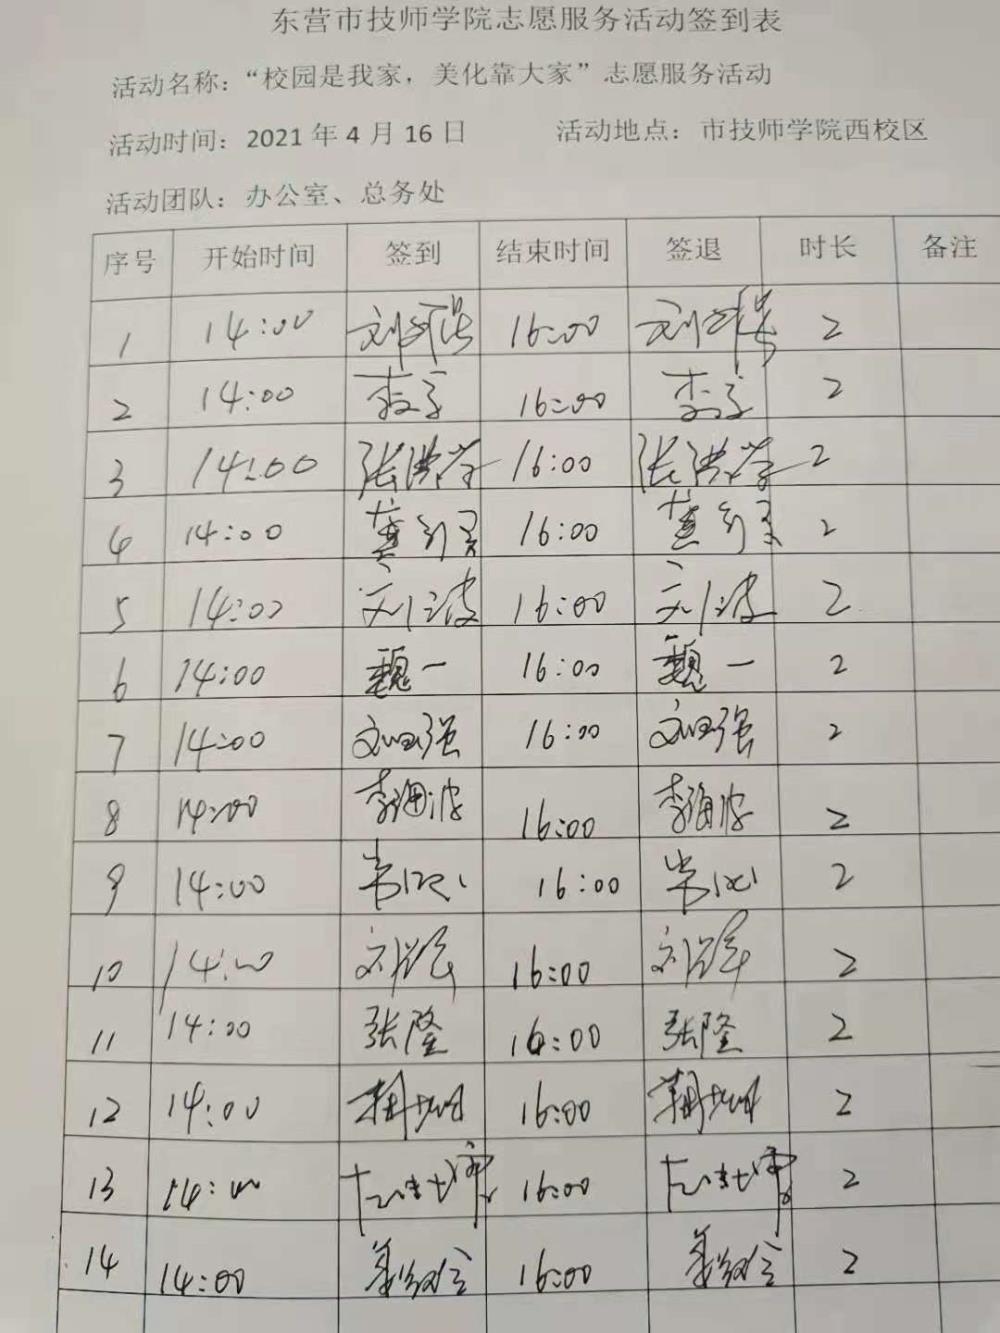 东营市技师学院志愿服务活动签到表
活动名称：“校园是我家，美化靠大家”志愿服务活动
活动时间：2021 年 4 月 16 日 活动地点：市技师学院西校区
活动团队：办公室、总务处
序号 开始时间 签到 结束时间 签退 时长 备注
1 14:00 16:00 2
2 14:00 16:00 2
3 14:00 16:00 2
4 14:00 16:00 2
5 14:00 16:00 2
6 14:00 魏一 16:00 魏一 2
7 14:00 16:00 2
8 14:00 李海波 16:00 李海波 2
9 14:00 16:00 2
10 14:00 16:00 2
11 14:00 张隆 16:00 张隆 2
12 14:00 16:00 2
13 14:00 16:00 2
14 14:00 16:00 2